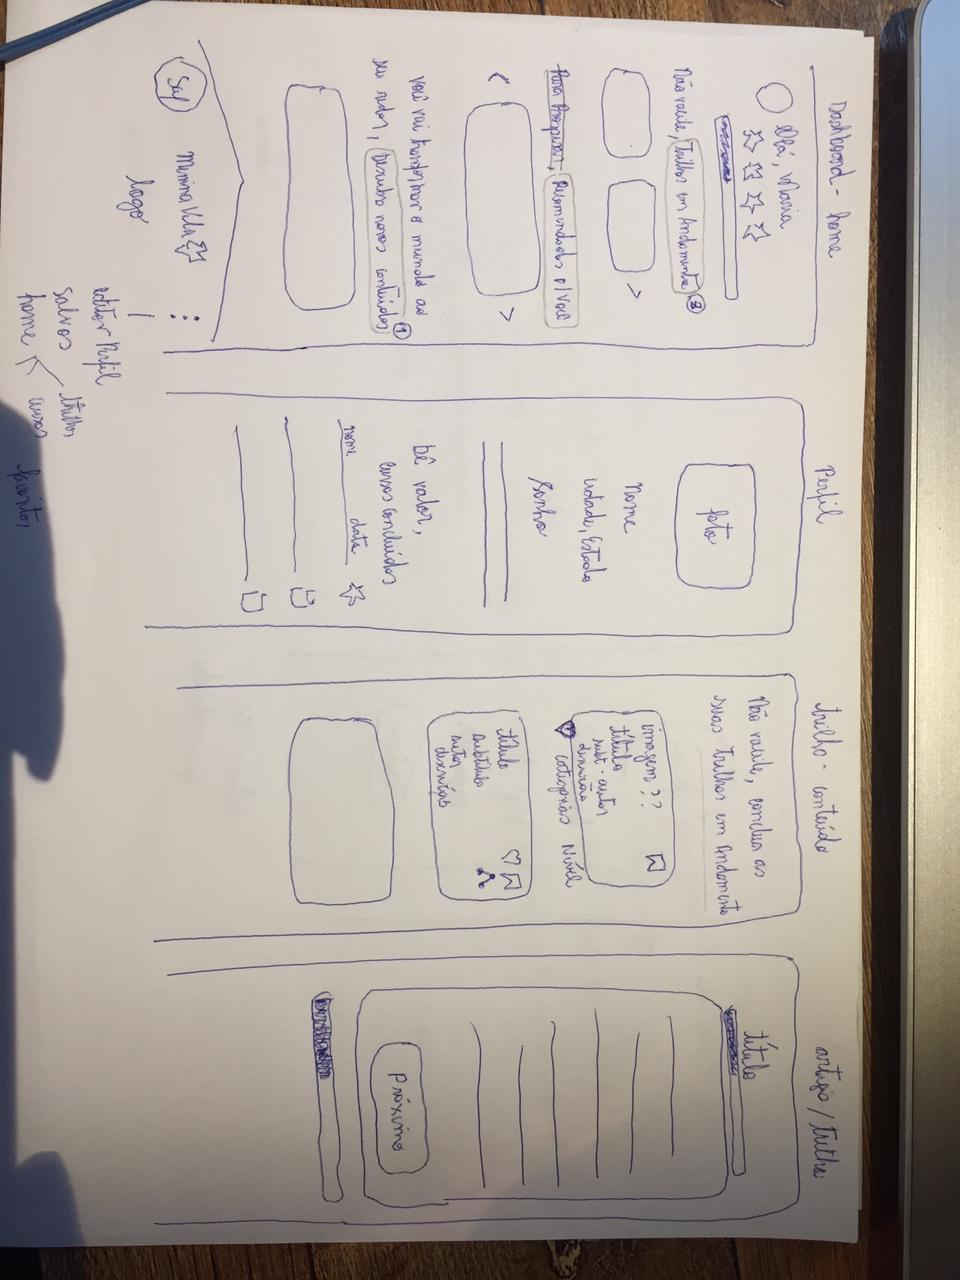 Dashboard - home
Olá, Maria
Não vacile, trilhas em Andamento 2
Para Prosperar, Recomendados p/ você
<
>
você vai transformar o mundo ao
seu redor, Descubra novos conteúdos 1
Menina Vela
logo
editar Perfil
salvos
home
trilhas
cursos
favoritos
Perfil
foto
Nome
cidade, Estado
Sonho
Dê valor,
cursos concluídos
nome data
trilha - conteúdo
Não vacile, conclua as
suas trilhas em Andamento
imagem ??
título
subt - autor
descrição
categorias Nível
título
subtítulo
autor
descrição
artigo / trilha
título
Próximo